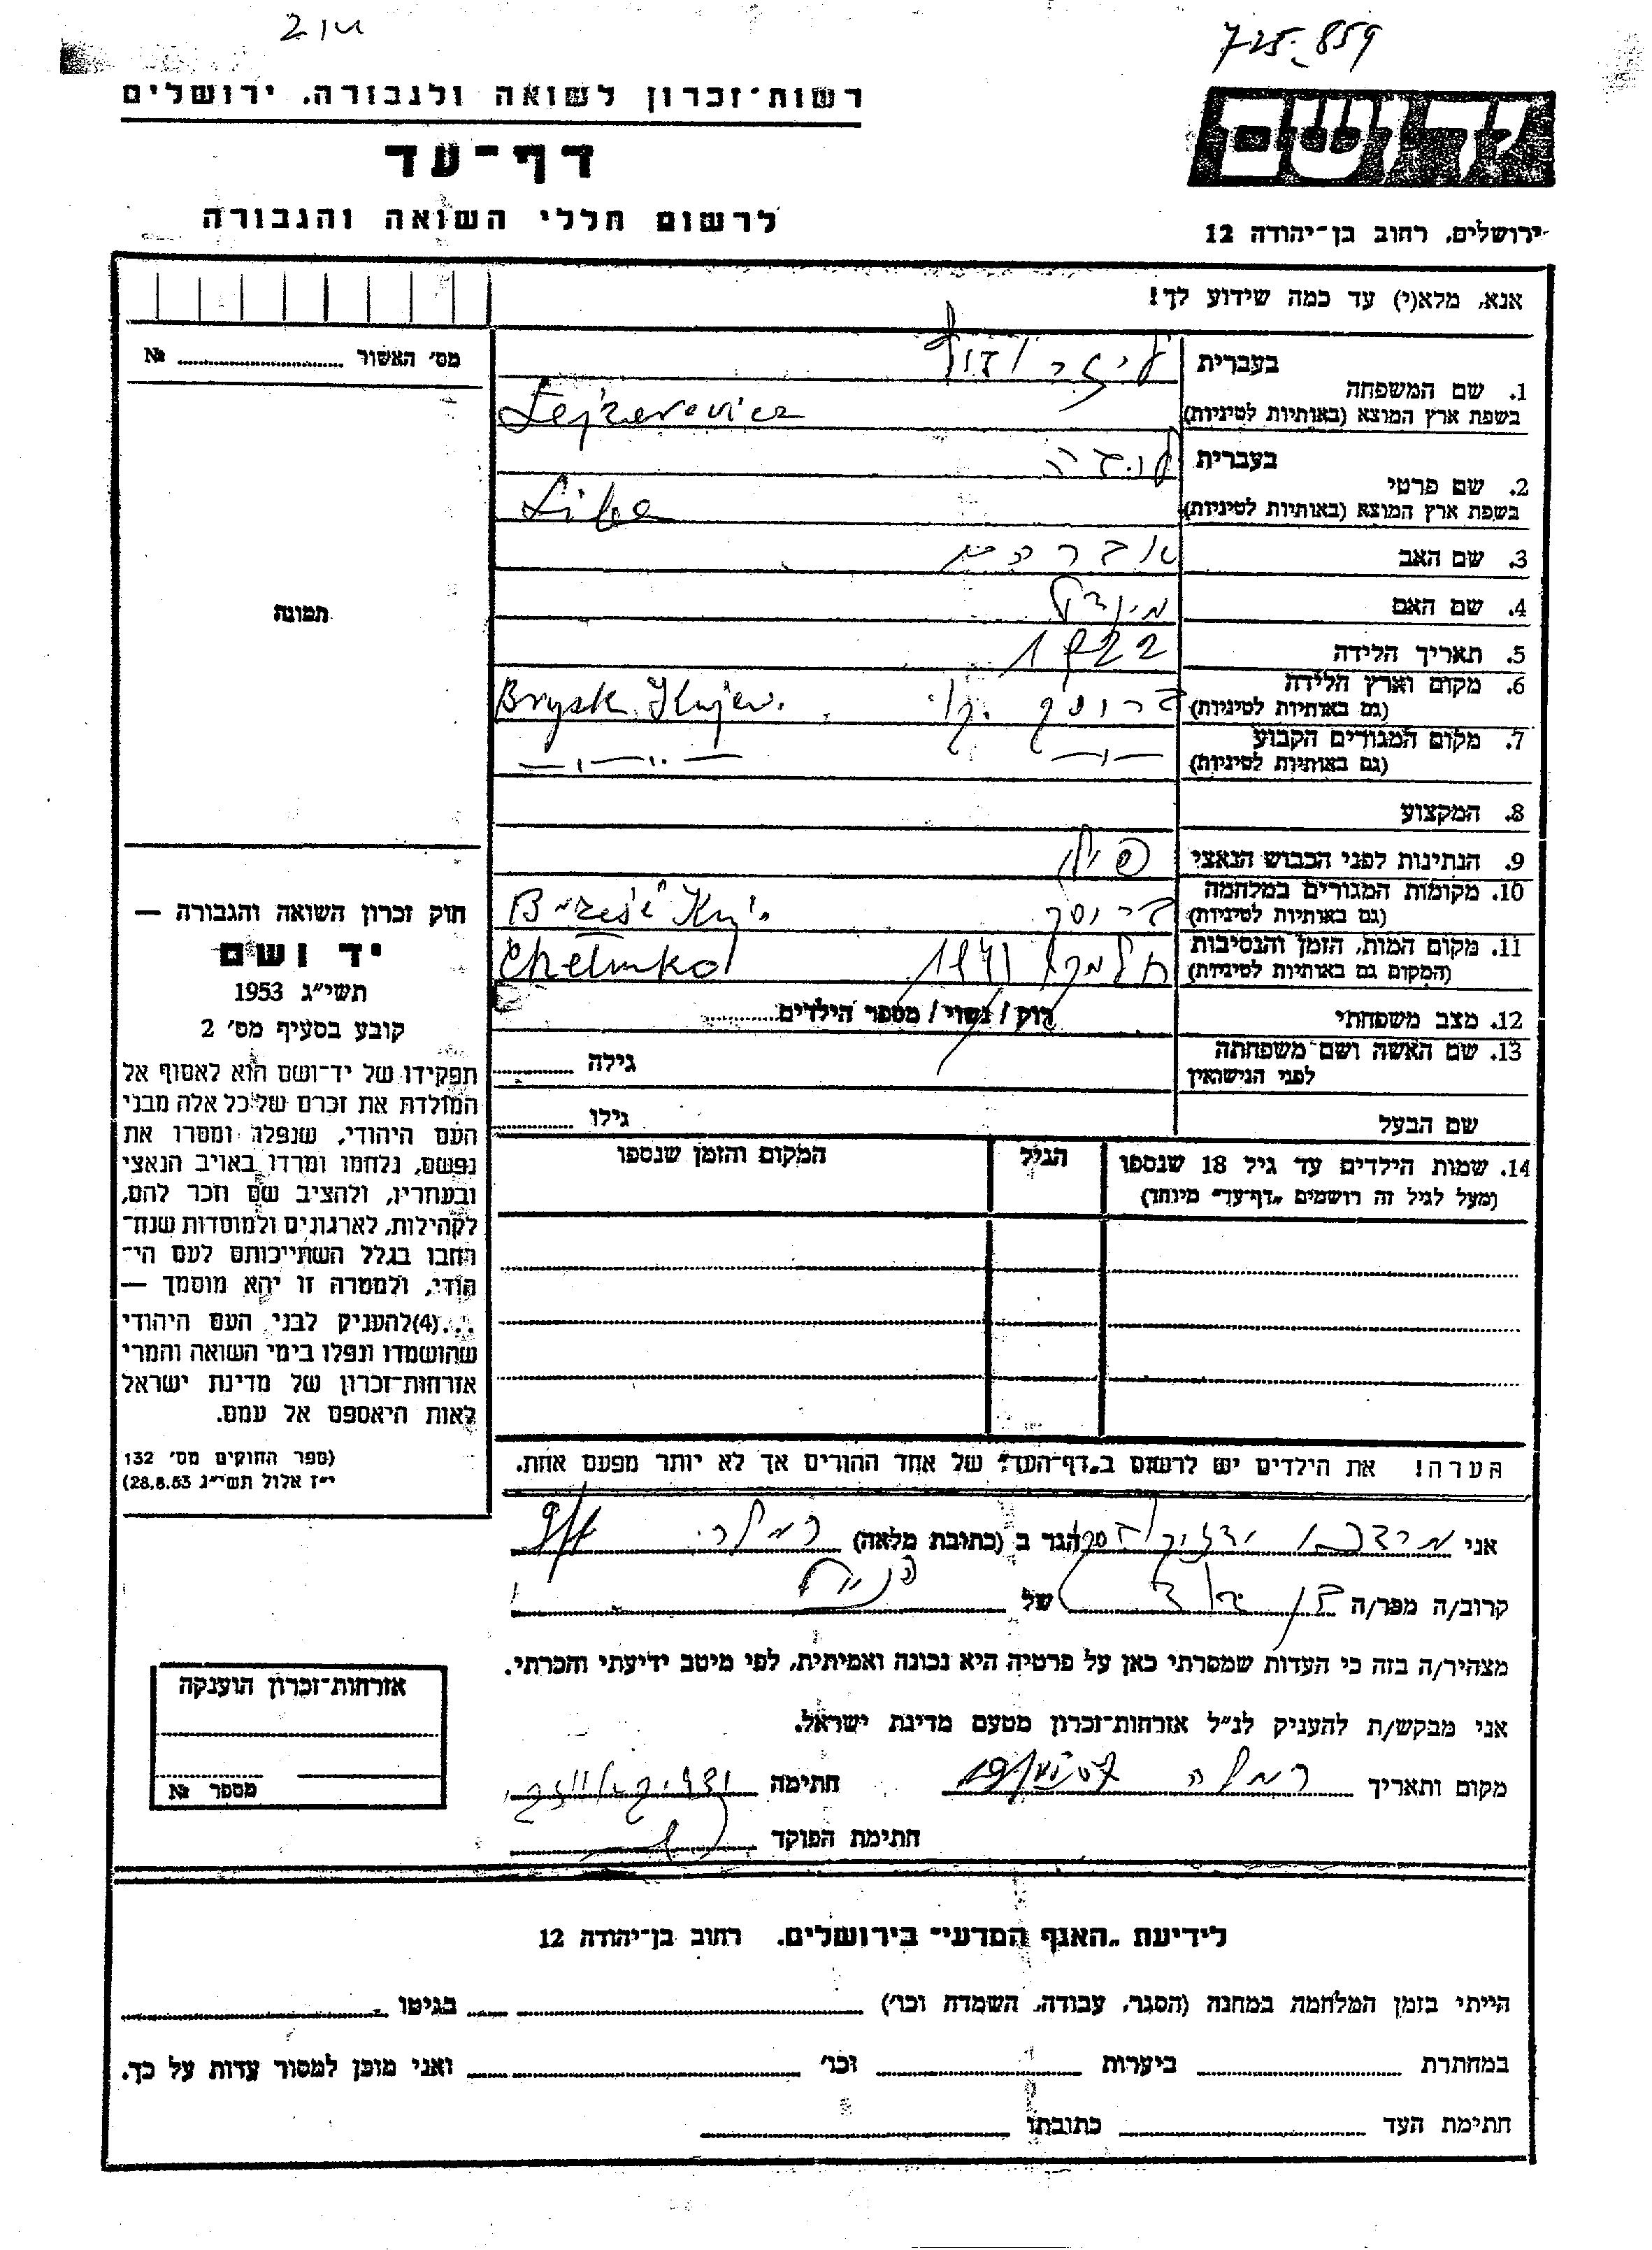 725-859
רשות־זכרון לשואה ולגבורה, ירושלים
דף־עד
לרשום חללי השואה והגבורה
ירושלים, רחוב בן־יהודה 12
אנא, מלא(י) עד כמה שידוע לך!
מס׳ האשור № ..........
תמונה
1. שם המשפחה
בעברית
בשפת ארץ המוצא (באותיות לטיניות) Lejzerovicz
2. שם פרטי
בעברית
בשפת ארץ המוצא (באותיות לטיניות) Liba
3. שם האב אברהם
4. שם האם
5. תאריך הלידה 1922
6. מקום וארץ הלידה
(גם באותיות לטיניות) Brysk Kujav.
7. מקום המגורים הקבוע
(גם באותיות לטיניות) —״— —״—
8. המקצוע
9. הנתינות לפני הכבוש הנאצי פולין
10. מקומות המגורים במלחמה
(גם באותיות לטיניות) Brześć Kuj.
11. מקום המות, הזמן והנסיבות
(המקום גם באותיות לטיניות) Chełmko
12. מצב משפחתי רוק / נשוי / מספר הילדים..........
13. שם האשה ושם משפחתה
לפני הנישואין גילה ..........
שם הבעל גילו ..........
14. שמות הילדים עד גיל 18 שנספו
(מעל לגיל זה רושמים „דף־עד״ מיוחד)
הגיל
המקום והזמן שנספו
חוק זכרון השואה והגבורה —
יד ושם
תשי״ג 1953
קובע בסעיף מס׳ 2
תפקידו של יד־ושם הוא לאסוף אל
המולדת את זכרם של כל אלה מבני
העם היהודי, שנפלו ומסרו את
נפשם, נלחמו ומרדו באויב הנאצי
ובעוזריו, ולהציב שם וזכר להם,
לקהילות, לארגונים ולמוסדות שנח־
רבו בגלל השתייכותם לעם הי־
הודי, ולמטרה זו יהא מוסמך —
...(4) להעניק לבני העם היהודי
שהושמדו ונפלו בימי השואה והמרי
אזרחות־זכרון של מדינת ישראל
לאות היאספם אל עמם.
(ספר החוקים מס׳ 132
י״ז אלול תשי״ג 28.8.53)
הערה! את הילדים יש לרשום ב„דף־העד״ של אחד ההורים אך לא יותר מפעם אחת.
אני הגר ב (כתובת מלאה) רמלה
קרוב/ה מכר/ה של
מצהיר/ה בזה כי העדות שמסרתי כאן על פרטיה היא נכונה ואמיתית, לפי מיטב ידיעתי והכרתי.
אני מבקש/ת להעניק לנ״ל אזרחות־זכרון מטעם מדינת ישראל.
מקום ותאריך רמלה חתימה
חתימת הפוקד
אזרחות־זכרון הוענקה
מספר №
לידיעת „האגף המדעי״ בירושלים, רחוב בן־יהודה 12
הייתי בזמן המלחמה במחנה (הסגר, עבודה, השמדה וכו׳) .......... בגיטו ..........
במחתרת .......... ביערות .......... וכו׳ .......... ואני מוכן למסור עדות על כך.
חתימת העד .......... כתובתו ..........